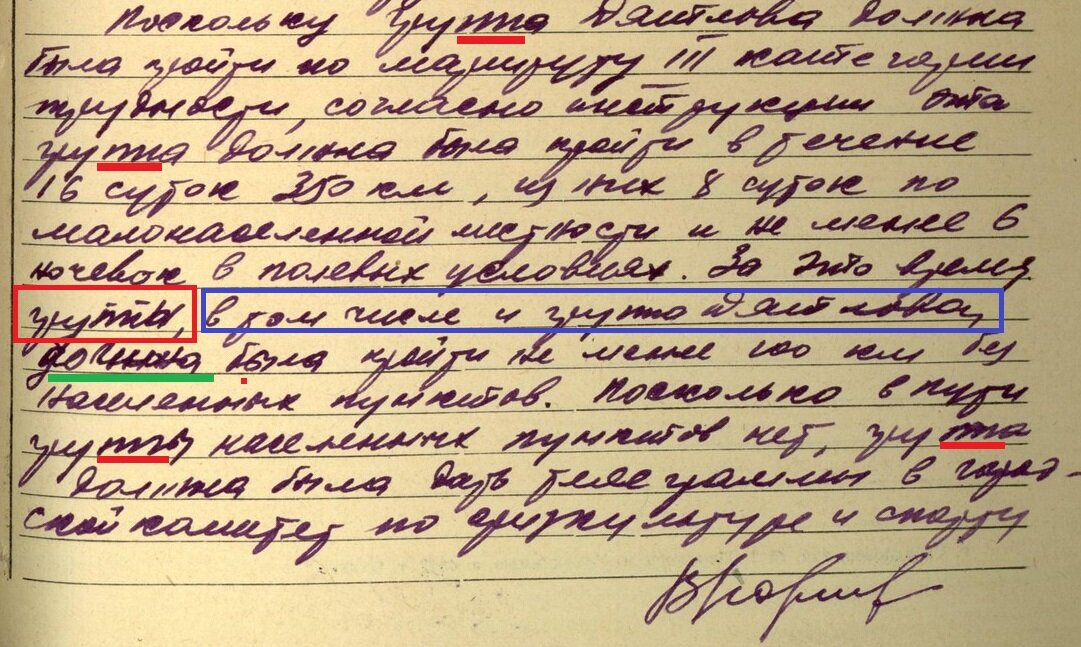 Поскольку группа Дятлова должна
была пройти по маршруту III категории
трудности, согласно инструкции эта
группа должна была пройти в течение
16 суток 350 км, из них 8 суток по
малонаселенной местности и не менее 6
ночевок в полевых условиях. За это время
группы, в том числе и группа Дятлова,
должна была пройти не менее 100 км без
населенных пунктов. Поскольку в пути
группы населенных пунктов нет, группа
должна была дать телеграммы в город-
ской комитет по физкультуре и спорту